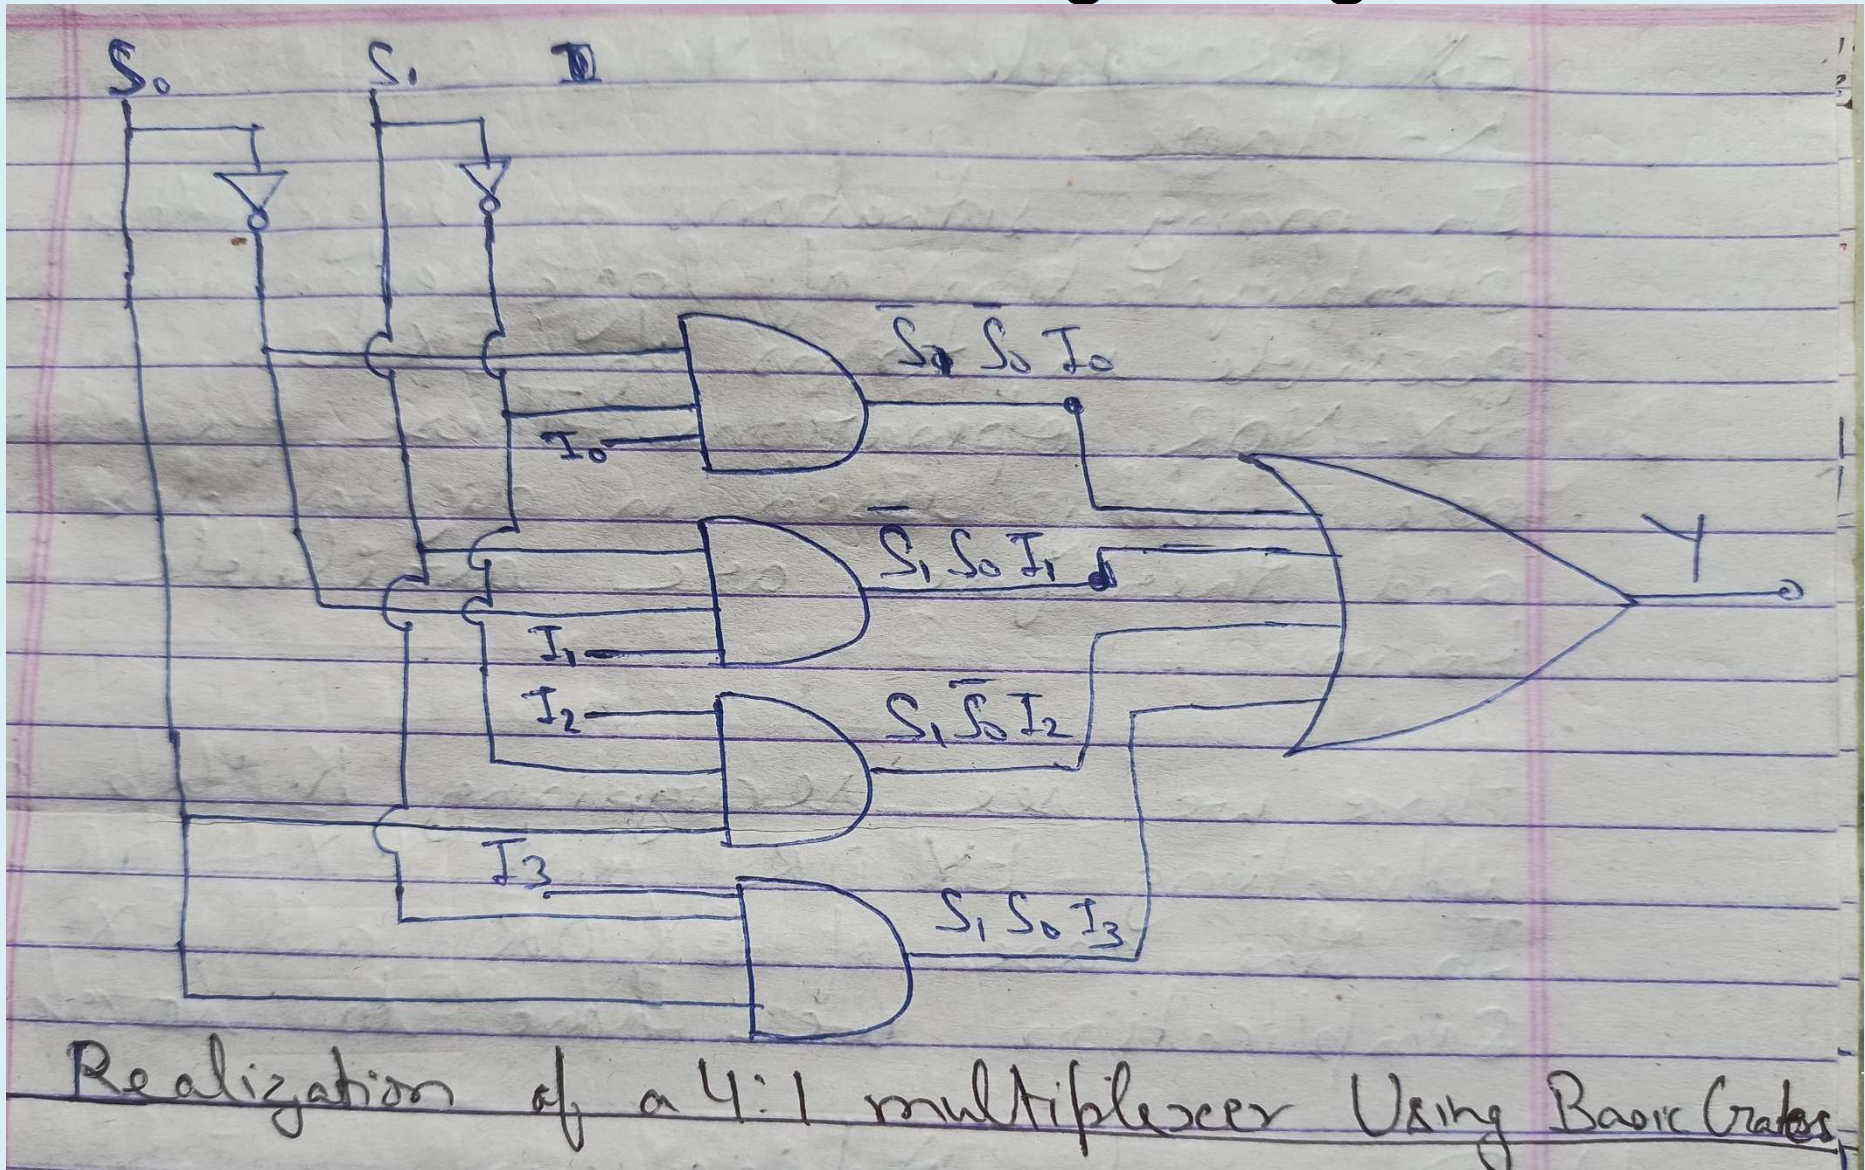 S₀ S₁
S̄₁ S̄₀ I₀
I₀
S̄₁ S₀ I₁
Y
I₁
I₂
S₁ S̄₀ I₂
I₃
S₁ S₀ I₃
Realization of a 4:1 multiplexer Using Basic Gates